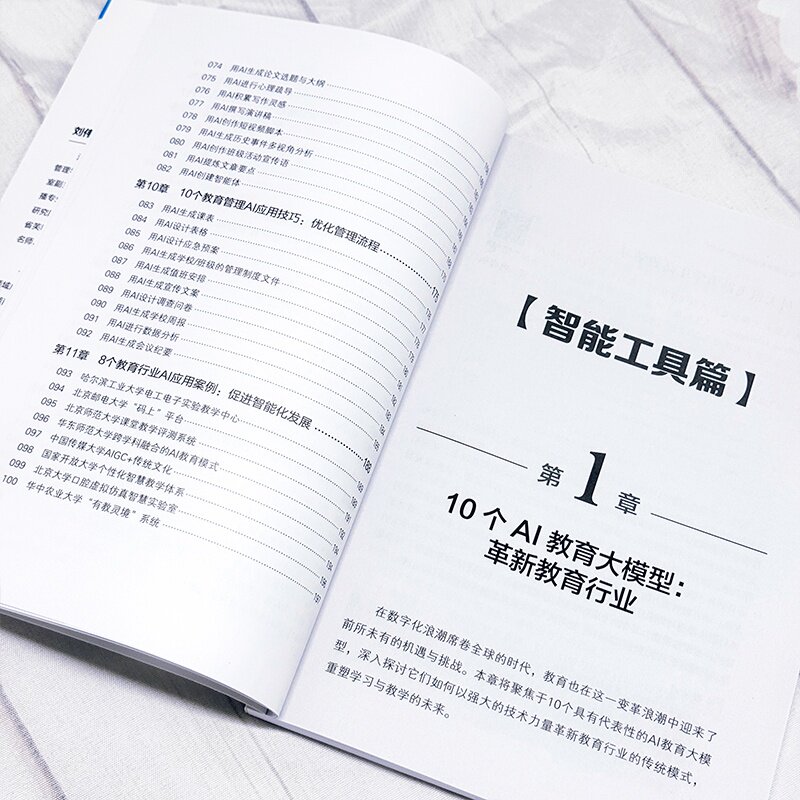 074 用AI生成论文选题与大纲
075 用AI进行心理疏导
076 用AI积累写作灵感
077 用AI撰写演讲稿
078 用AI创作短视频脚本
079 用AI生成历史事件多视角分析
080 用AI创作班级活动宣传语
081 用AI提炼文章要点
082 用AI创建智能体
第10章 10个教育管理AI应用技巧:优化管理流程
083 用AI生成课表
084 用AI设计表格
085 用AI设计应急预案
086 用AI生成学校/班级的管理制度文件
087 用AI生成值班安排
088 用AI生成宣传文案
089 用AI设计调查问卷
090 用AI生成学校周报
091 用AI进行数据分析
092 用AI生成会议纪要
第11章 8个教育行业AI应用案例:促进智能化发展
093 哈尔滨工业大学电工电子实验教学中心
094 北京邮电大学“码上”平台
095 北京师范大学课堂教学评测系统
096 华东师范大学跨学科融合的AI教育模式
097 中国传媒大学AIGC+传统文化
098 国家开放大学个性化智慧教学体系
099 北京大学口腔虚拟仿真智慧实验室
100 华中农业大学“有教灵境”系统
【智能工具篇】
第1章
10个AI教育大模型:
革新教育行业
在数字化浪潮席卷全球的时代,教育也在这一变革浪潮中迎来了
前所未有的机遇与挑战。本章将聚焦于10个具有代表性的AI教育大模
型,深入探讨它们如何以强大的技术力量革新教育行业的传统模式,
重塑学习与教学的未来。